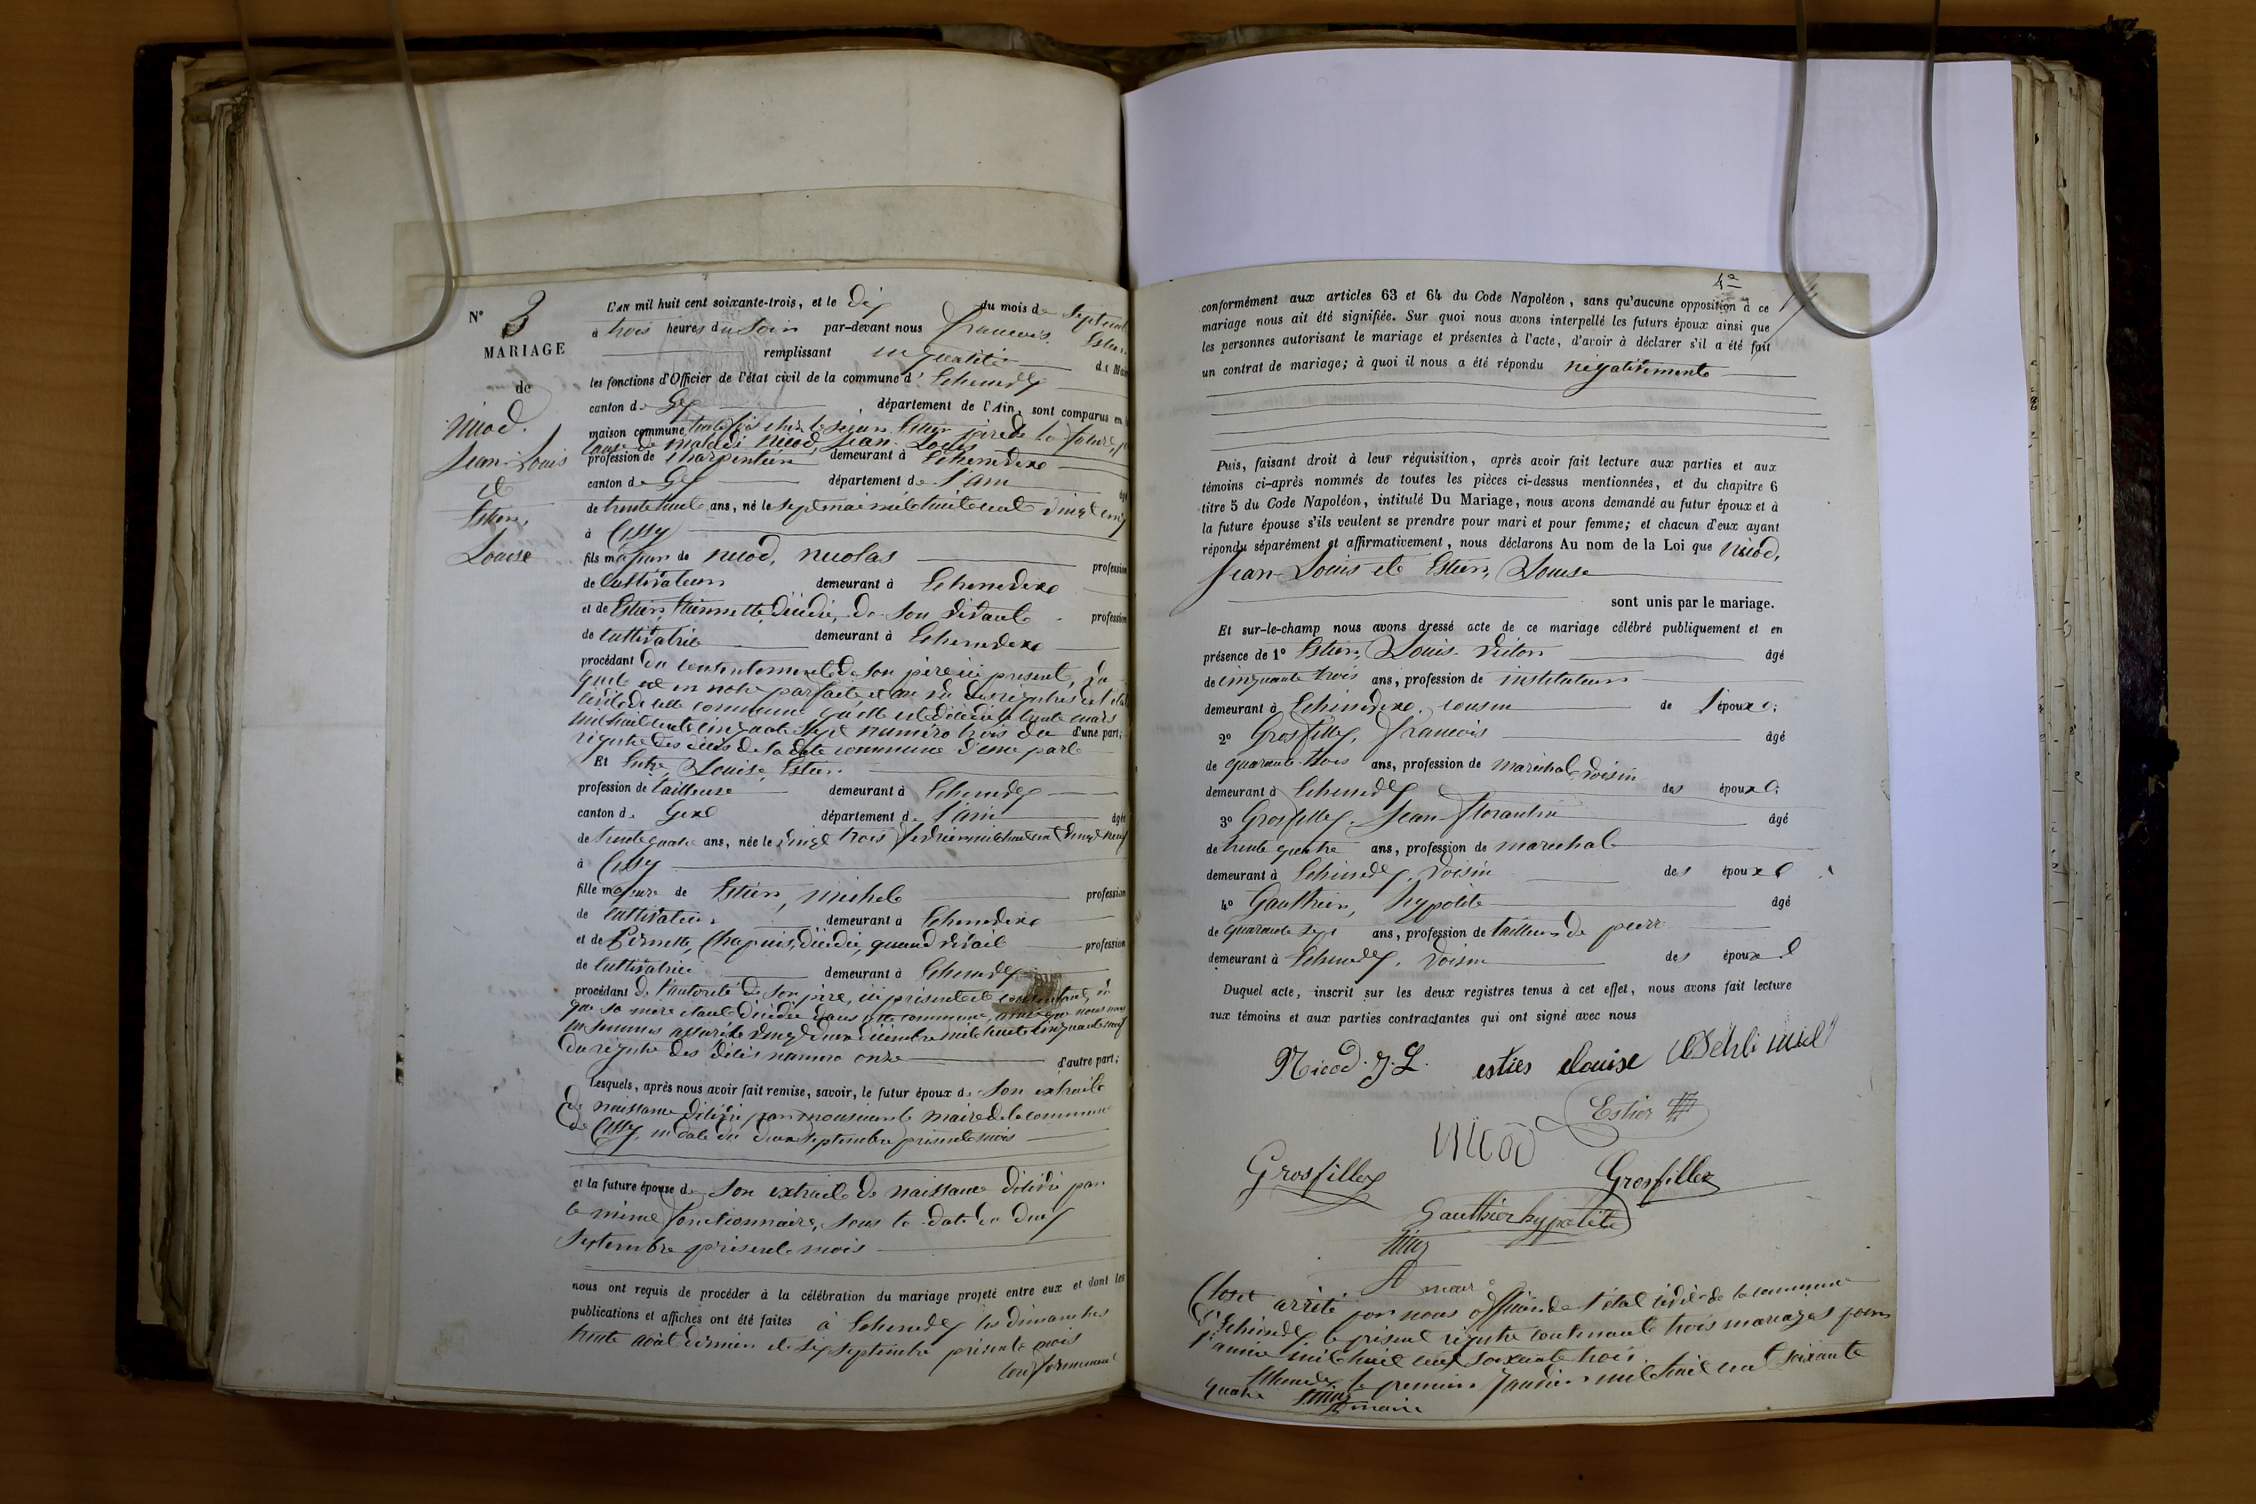 N° 3
MARIAGE
de
Nicod.
Jean-Louis
et
Estier,
Louise
L'AN mil huit cent soixante-trois, et le dix du mois de Septem
à trois heures du soir par-devant nous francois Estier
remplissant en qualité de Mair
les fonctions d'Officier de l'état civil de la commune d' Echenevex
canton de Gex, département de l'Ain, sont comparus en
maison commune toutefois chez le sieur Estier père de la future,
cause de maladi Nicod, Jean-Louis
profession de charpentier demeurant à Echenevex
canton de Gex département de l'ain âgé
de trente huit ans, né le sept mai mil huit cent vingt cinq
à Cessy
fils majeur de Nicod, Nicolas profession
de cultivateur demeurant à Echenevex
et de Estier, Etiennette, décédée, de son vivant profession
de cultivatrice demeurant à Echenevex
procédant du consentement de son père ici présent,
mil huit cent cinquante sept numéro trois du d'une part;
registre des décès de la dite commune d'une part
Et Entre, Louise, Estier.
profession de tailleuse demeurant à Echenevex
canton de Gex département de l'ain âgée
de trente quatre ans, née le vingt trois février mil huit cent vingt neuf
à Cessy
fille majeure de Estier, Michel profession
de cultivateur demeurant à Echenevex
et de Pernette, Chapuis, décédée, quand vivait profession
de cultivatrice demeurant à Echenevex
procédant de l'autorité de son père, ici présent et consentant,
que sa mère étant décédée dans cette commune, ainsi que nous nous
en sommes assuré le vingt deux décembre mil huit cent cinquante neuf
du registre des décès numéro onze d'autre part;
Lesquels, après nous avoir fait remise, savoir, le futur époux de Son extrait
de naissance délivré par monsieur le maire de la commune
de Cessy, en date du deux septembre présent mois
et la future épouse de Son extrait de naissance délivré par
le même fonctionnaire, sous la date du deux
Septembre présent mois
nous ont requis de procéder à la célébration du mariage projeté entre eux et dont les
publications et affiches ont été faites à Echenevex les dimanches
trente août dernier et six septembre présent mois
conformément
conformément aux articles 63 et 64 du Code Napoléon, sans qu'aucune opposition à ce
mariage nous ait été signifiée. Sur quoi nous avons interpellé les futurs époux ainsi que
les personnes autorisant le mariage et présentes à l'acte, d'avoir à déclarer s'il a été fait
un contrat de mariage; à quoi il nous a été répondu négativement
Puis, faisant droit à leur réquisition, après avoir fait lecture aux parties et aux
témoins ci-après nommés de toutes les pièces ci-dessus mentionnées, et du chapitre 6
titre 5 du Code Napoléon, intitulé Du Mariage, nous avons demandé au futur époux et à
la future épouse s'ils veulent se prendre pour mari et pour femme; et chacun d'eux ayant
répondu séparément et affirmativement, nous déclarons Au nom de la Loi que Nicod,
Jean-Louis et Estier, Louise
sont unis par le mariage.
Et sur-le-champ nous avons dressé acte de ce mariage célébré publiquement et en
présence de 1° Estier, Louis-Victor âgé
de cinquante trois ans, profession de instituteur
demeurant à Echenevex, cousin de l'époux;
2° Grosfilley, francois âgé
de quarante-trois ans, profession de maréchal, voisin
demeurant à Echenevex des époux;
3° Grosfilley, Jean-florentin âgé
de trente quatre ans, profession de maréchal
demeurant à Echenevex, voisin des époux
4° Gauthier, hypolite âgé
de quarante sept ans, profession de tailleur de pierre
demeurant à Echenevex, voisin des époux
Duquel acte, inscrit sur les deux registres tenus à cet effet, nous avons fait lecture
aux témoins et aux parties contractantes qui ont signé avec nous
Nicod. J. L. esties louise
Estier
nicod
Grosfilley
Grosfillex
Gauthier hypolite
Estier
maire
Clos et arrêté par nous officier de l'état civil de la commune
d'Echenevex le présent registre contenant trois mariages pour
l'année mil huit cent soixante trois
Echenevex le premier Janvier mil huit cent soixante
quatre Estier
maire